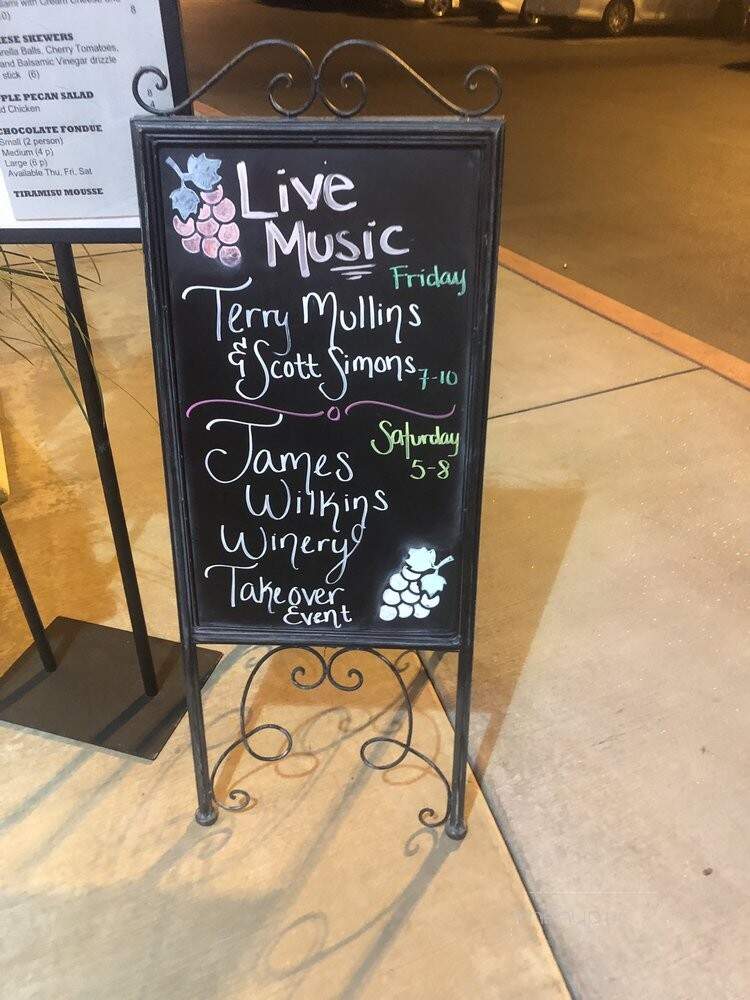 8
0)
ESE SKEWERS
rella Balls, Cherry Tomatoes,
and Balsamic Vinegar drizzle
stick (6)
PLE PECAN SALAD
8
d Chicken
CHOCOLATE FONDUE
Small (2 person)
Medium (4 p)
Large (6 p)
Available Thu, Fri, Sat
TIRAMISU MOUSSE
Live
Music
Friday
Terry Mullins
& Scott Simons 7-10
Saturday
5-8
James
Wilkins
Winery
Takeover
Event